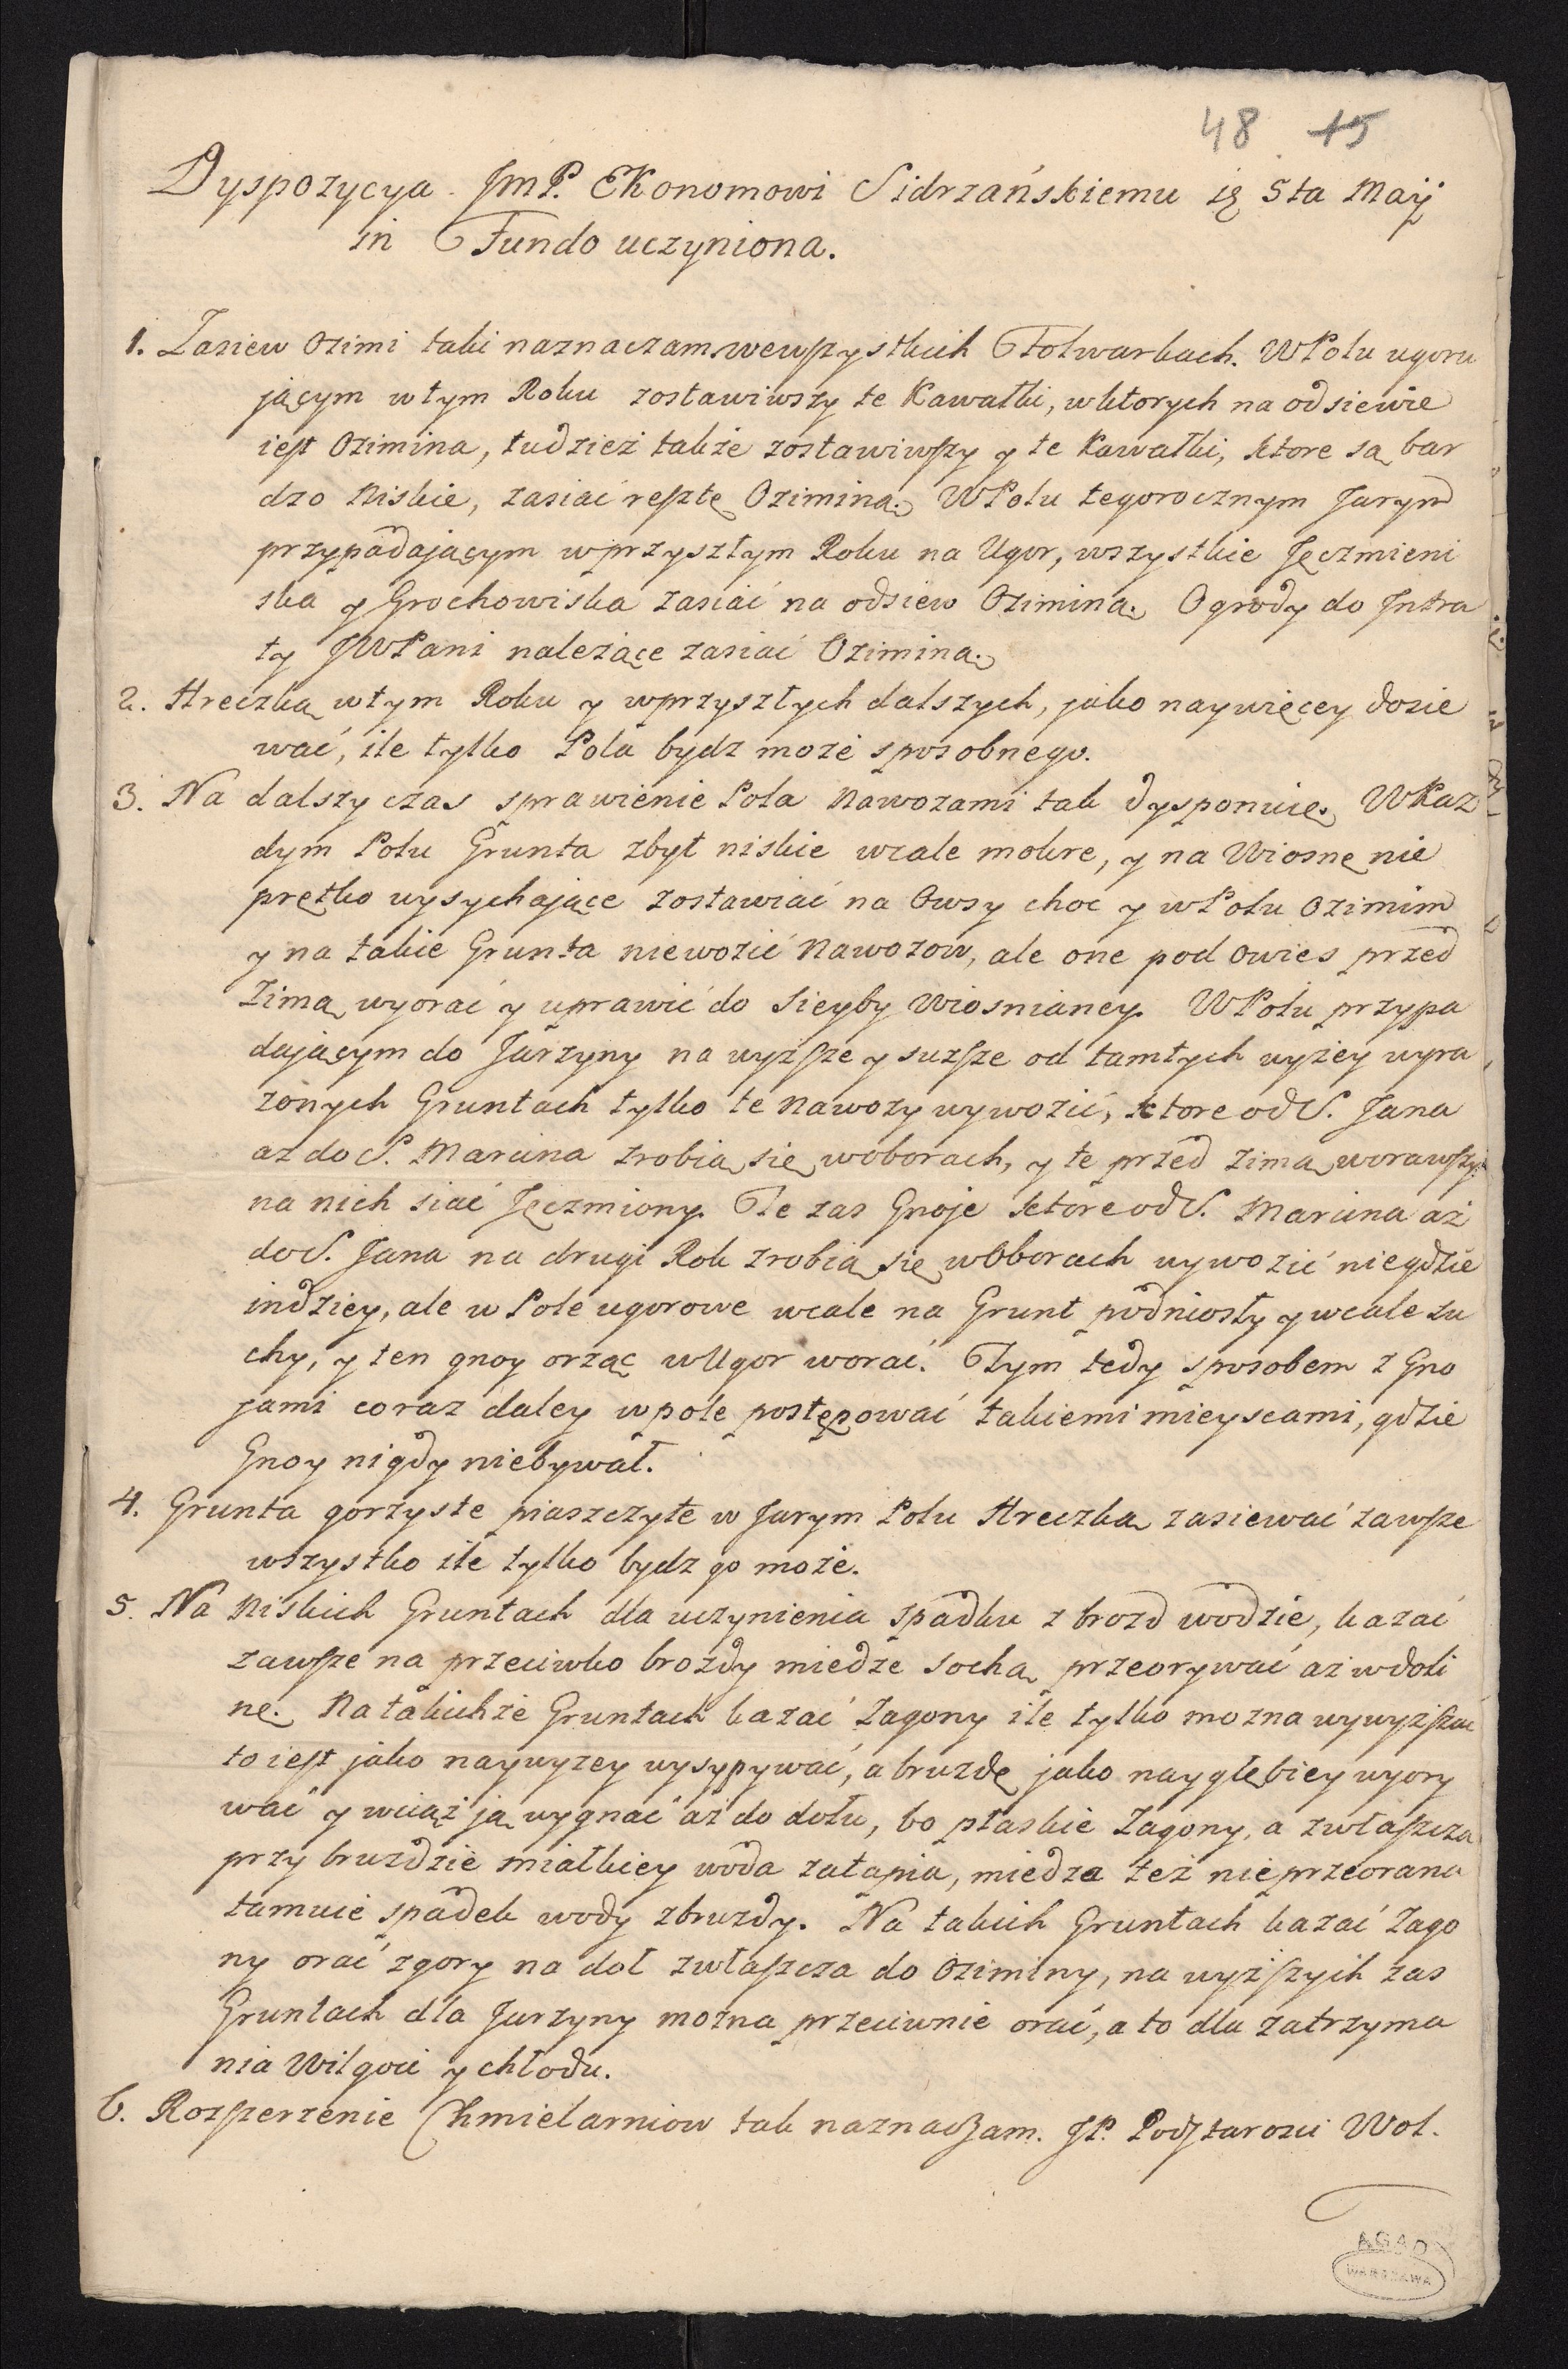 48 15
Dyspozycya JmP. Ekonomowi Sidrzańskiemu 5ta Maij
in Fundo uczyniona.
1. Zasiew Ozimi taki naznaczam wewszystkich Folwarkach. WPolu ugoru
jącym wtym Roku zostawiwszy te Kawałki, wktorych na odsiewie
iest Ozimina, tudzież także zostawiwszy y te Kawałki, ktore są bar
dzo Niskie, zasiać resztę Oziminą. WPolu tegorocznym Jarym
przypadającym wprzyszłym Roku na Ugor, wszystkie Jęczmieni
ska y Grochowiska zasiać na odsiew Oziminą. Ogrody do Jntra
ty JWPani należące zasiać Oziminą.
2. Hreczką wtym Roku y wprzyszłych dalszych, jako naywięcey dosie
wać, ile tylko Pola bydz może sposobnego.
3. Na dalszy czas sprawienie Pola Nawozami tak dysponuię. WKaz
dym Polu Grunta zbyt niskie wcale mokre, y na Wiosnę nie
prętko wysychające zostawiać na Owsy choc y wPolu Ozimim
y na takie Grunta niewozić Nawozow, ale one pod Owies przed
Zimą wyorać y uprawić do Sieyby Wiosnianey. WPolu przypa
dającym do Jarzyny na wyższe y suzsze od tamtych wyżey wyra
zonych Gruntach tylko te Nawozy wywozić, ktore od S. Jana
az do S. Marcina zrobią się woborach, y te przed Zimą worawszy
na nich siać Jęczmiony. Te zas Gnoje ktore od S. Marcina aż
do S. Jana na drugi Rok zrobią się wOborach wywozić niegdzie
indziey, ale w Pole ugorowe wcale na Grunt podniosły y wcale su
chy, y ten gnoy orząc wUgor worać. Tym tedy sposobem z Gno
jami coraz daley wpole postępować takiemi mieyscami, gdzie
Gnoy nigdy niebywał.
4. Grunta gorzyste piaszczyte w Jarym Polu Hreczką zasiewać zawsze
wszystko ile tylko bydz go może.
5. Na Niskich Gruntach dla uczynienia spadku z brozd wodzie, kazać
zawsze na przeciwko brozdy miedze sochą przeorywać aż wdoli
nę. Na takichże Gruntach kazać Zagony ile tylko mozna wywyższać
to iest jako naywyzey wysypywać, a bruzdę jako naygłębiey wyory
wać y wciąż ją wygnać aż do dołu, bo płaskie Zagony, a zwłaszcza
przy bruzdzie miałkiey woda zatapia, miedza też nieprzeorana
tamuie spadek wody zbruzdy. Na takich Gruntach kazać Zago
ny orać zgory na doł zwłaszcza do Oziminy, na wyższych zas
Gruntach dla Jarzyny mozna przeciwnie orać, a to dla zatrzyma
nia Wilgoci y chłodu.
6. Rozszerzenie Chmielarniow tak naznaczam. JP. Podstarosci Wol.
AGAD
WARSZAWA